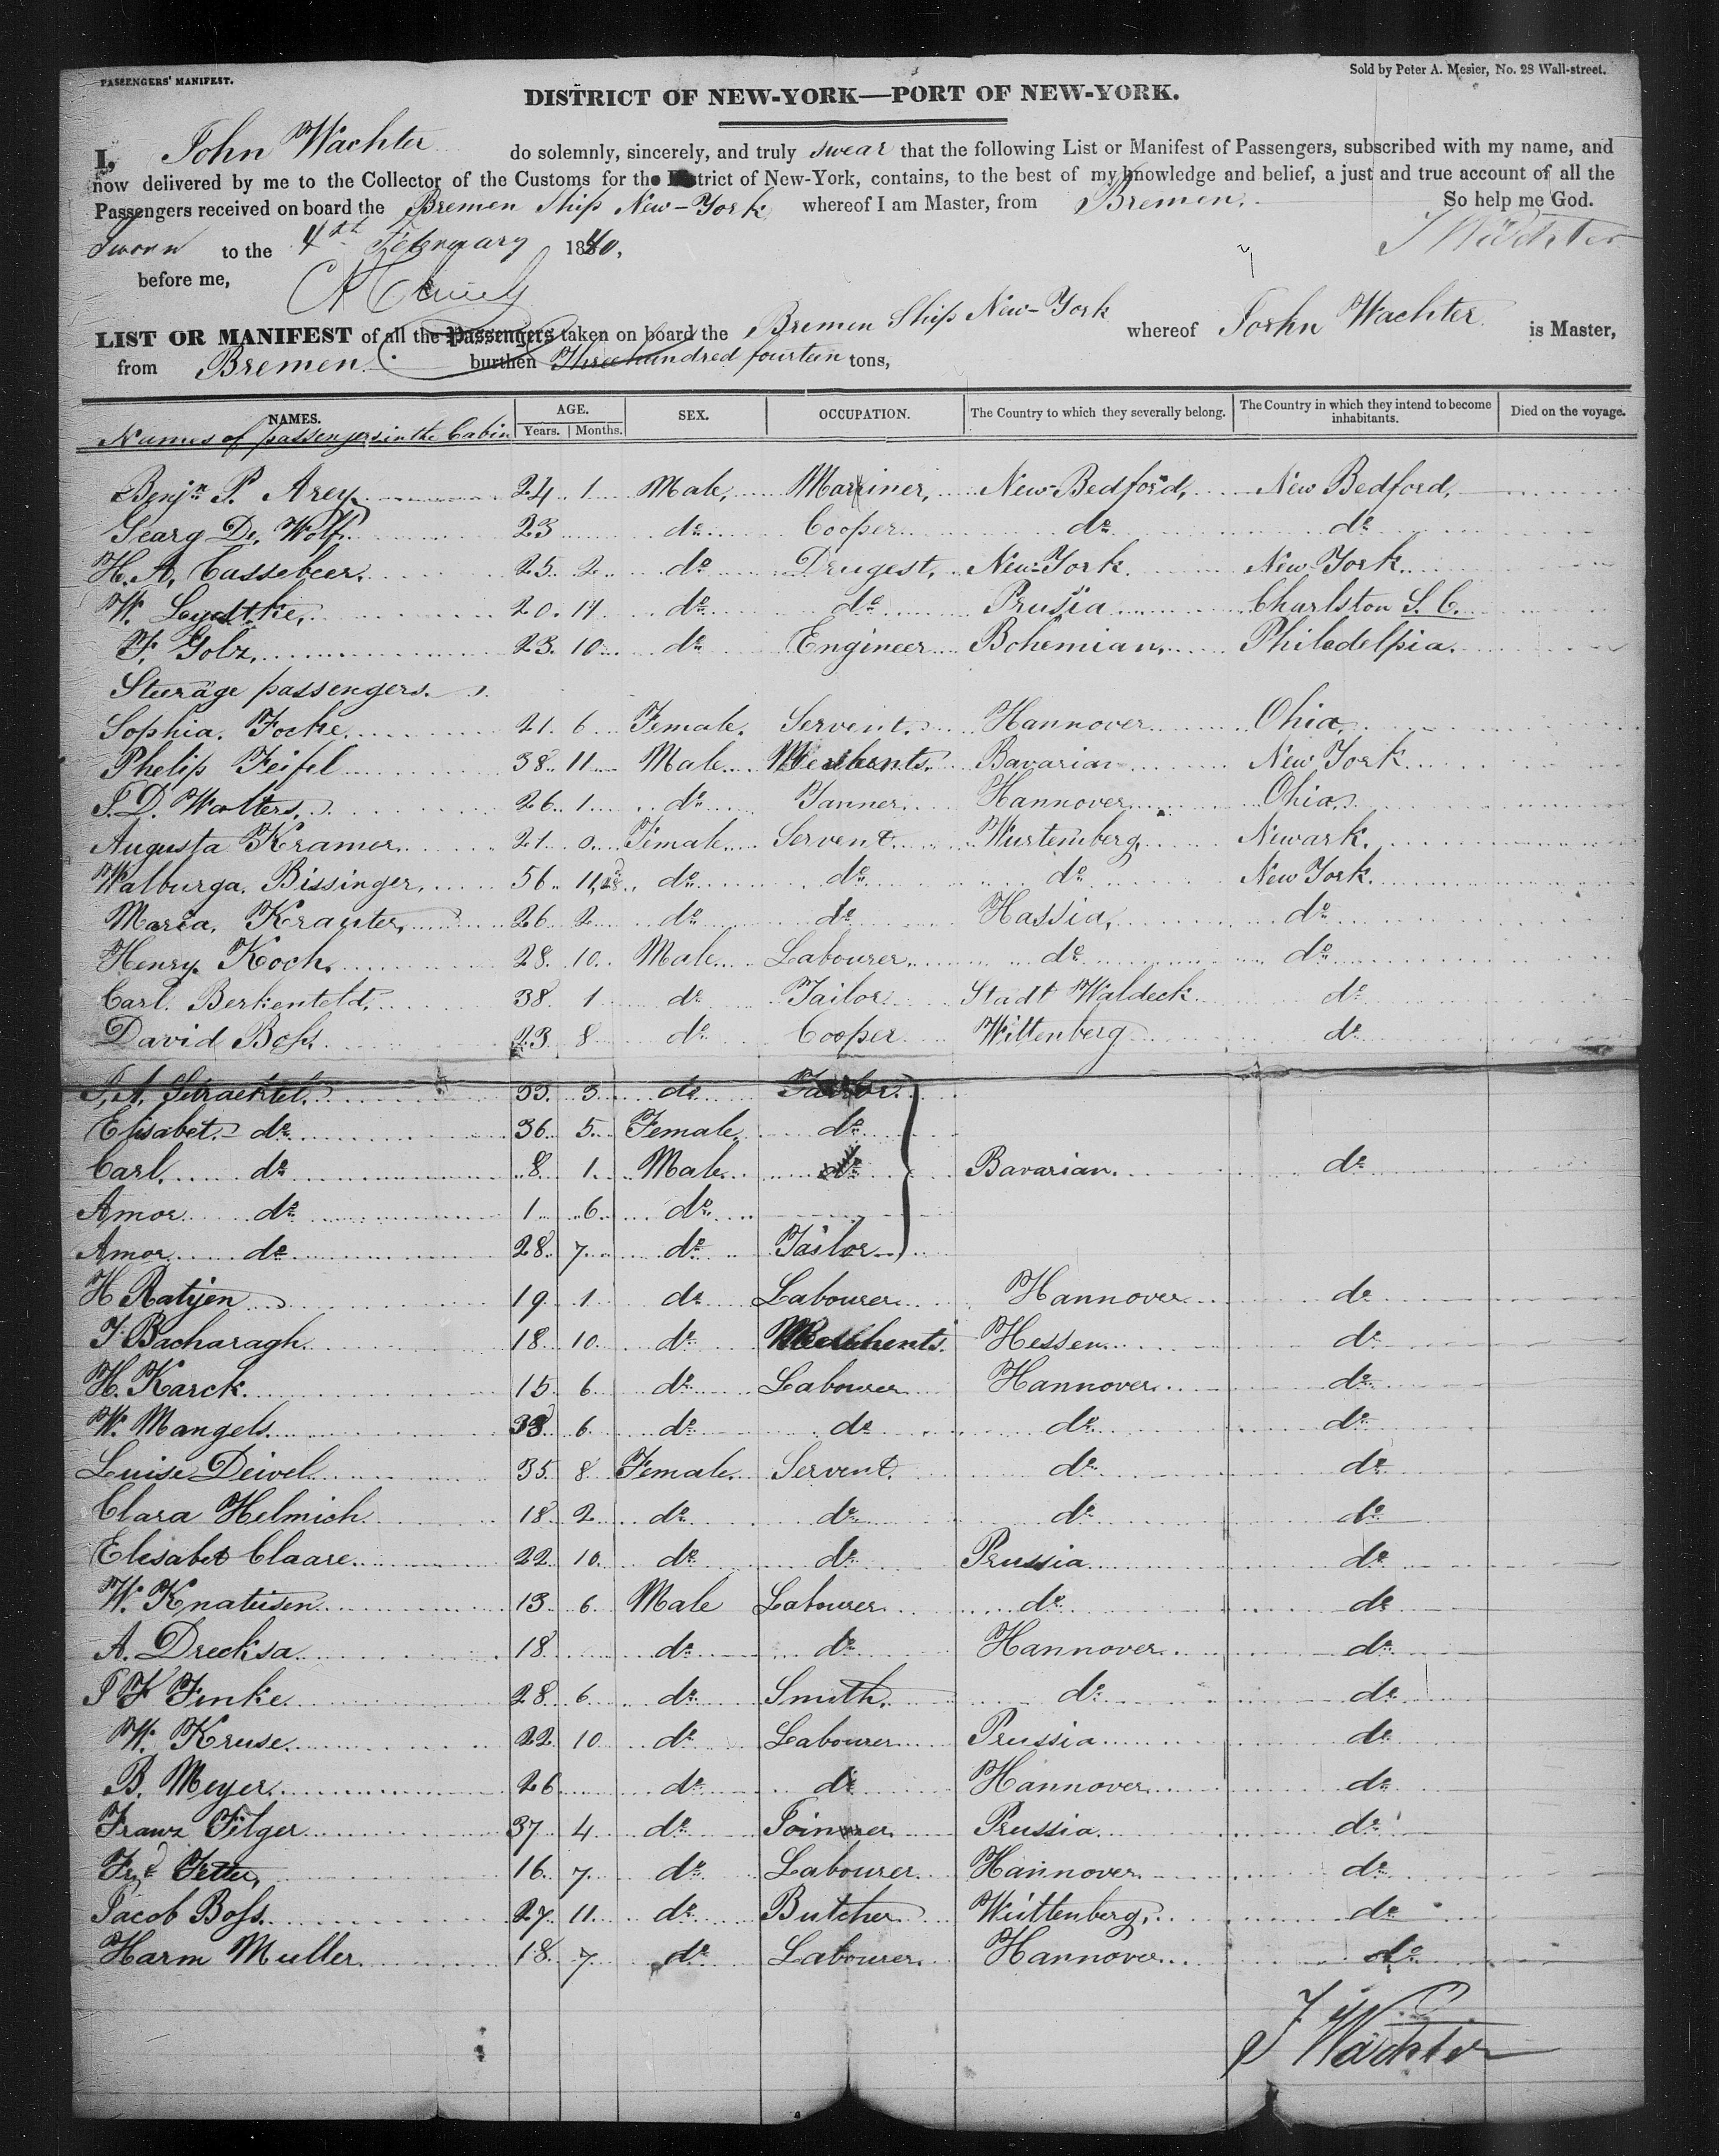 PASSENGERS' MANIFEST.
Sold by Peter A. Mesier, No. 28 Wall-street.
DISTRICT OF NEW-YORK—PORT OF NEW-YORK.
I, John Wachter do solemnly, sincerely, and truly swear that the following List or Manifest of Passengers, subscribed with my name, and
now delivered by me to the Collector of the Customs for the District of New-York, contains, to the best of my knowledge and belief, a just and true account of all the
Passengers received on board the Bremen Ship New-York whereof I am Master, from Bremen. So help me God.
Sworn to the 4th February 1840. J Wächter
before me,
LIST OR MANIFEST of all the Passengers taken on board the Bremen Ship New-York whereof John Wachter is Master,
from Bremen. burthen Three hundred fourteen tons,
NAMES. AGE. SEX. OCCUPATION. The Country to which they severally belong. The Country in which they intend to become inhabitants. Died on the voyage.
Years. Months.
Names of passengers in the Cabin
Benjn P. Arey 24 1 Male, Mariner, New-Bedford, New Bedford,
Gearg De. Wolf 23 do Cooper do do
H. A. Cassebeer. 25 2 do Drugest, New-York. New-York.
W. Lydtke, 20 11 do do Prusia Charlston S. C.
F. Golz, 23 10 do Engineer Bohemian, Philadelpia.
Steeräge passengers.
Sophia. Focke 21 6 Female. Servent. Hannover Ohio.
Phelip Feifel 38 11 Male Merchents. Bavarian New York
J. D. Wolters. 26 1 do Tanner. Hannover Ohio.
Augusta Kramer. 21 0 Female Servent Wurtemberg. Newark.
Walburga. Bissinger. 56 11 do do do New York.
Maria. Krauter, 26 2 do do Hassia, do
Henry Koch. 28 10 Male Labourer do do
Carl. Berkenteld. 38 1 do Tailor Stadt Waldeck do
David Boss. 23 8 do Cooper Wittenberg do
33 3 do Tailor
Elisabet. do 36 5 Female. do
Carl. do 8 1 Male do Bavarian. do
Amor do 1 6 do
Amor do 28 7 do Tailor
H Ratjen 19 1 do Labourer Hannover do
J Bacharagh. 18 10 do Merchents Hessen. do
H. Karck. 15 6 do Labourer Hannover do
W. Mangels 33 6 do do do do
Luise Deivel 35 8 Female. Servent. do do
Clara Helmich. 18 2 do do do do
Elesabet Claare. 22 10 do do Prussia do
W. Knatiesen 13 6 Male Labourer do do
A. Drecksa 18 do do Hannover do
J F Finke 28 6 do Smith. do do
W. Kruse. 22 10 do Labourer Prussia do
B. Meyer 26 do do Hannover do
Franz Filger 37 4 do Joinner. Prussia do
Frd Fetter, 16 7 do Labourer Hannover do
Jacob Boss. 27 11 do Butcher Wüttenberg. do
Harm Muller. 18 7 do Labourer. Hannover do
J Wächter